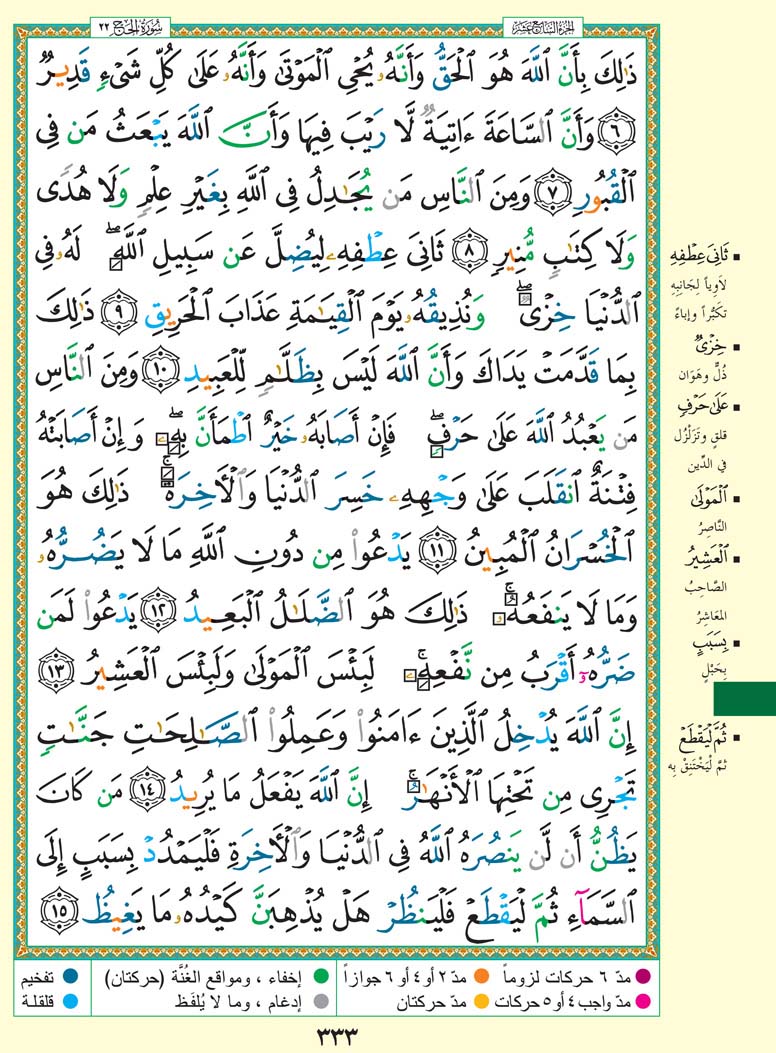 الجزء السابع عشر
سورة الحج ٢٢
ذَٰلِكَ بِأَنَّ ٱللَّهَ هُوَ ٱلْحَقُّ وَأَنَّهُۥ يُحْىِ ٱلْمَوْتَىٰ وَأَنَّهُۥ عَلَىٰ كُلِّ شَىْءٍ قَدِيرٌ
٦ وَأَنَّ ٱلسَّاعَةَ ءَاتِيَةٌ لَّا رَيْبَ فِيهَا وَأَنَّ ٱللَّهَ يَبْعَثُ مَن فِى
ٱلْقُبُورِ ٧ وَمِنَ ٱلنَّاسِ مَن يُجَٰدِلُ فِى ٱللَّهِ بِغَيْرِ عِلْمٍ وَلَا هُدًى
وَلَا كِتَٰبٍ مُّنِيرٍ ٨ ثَانِىَ عِطْفِهِۦ لِيُضِلَّ عَن سَبِيلِ ٱللَّهِ ۖ لَهُۥ فِى
ٱلدُّنْيَا خِزْىٌ ۖ وَنُذِيقُهُۥ يَوْمَ ٱلْقِيَٰمَةِ عَذَابَ ٱلْحَرِيقِ ٩ ذَٰلِكَ
بِمَا قَدَّمَتْ يَدَاكَ وَأَنَّ ٱللَّهَ لَيْسَ بِظَلَّٰمٍ لِّلْعَبِيدِ ١٠ وَمِنَ ٱلنَّاسِ
مَن يَعْبُدُ ٱللَّهَ عَلَىٰ حَرْفٍ ۖ فَإِنْ أَصَابَهُۥ خَيْرٌ ٱطْمَأَنَّ بِهِۦ ۖ وَإِنْ أَصَابَتْهُ
فِتْنَةٌ ٱنقَلَبَ عَلَىٰ وَجْهِهِۦ خَسِرَ ٱلدُّنْيَا وَٱلْءَاخِرَةَ ۚ ذَٰلِكَ هُوَ
ٱلْخُسْرَانُ ٱلْمُبِينُ ١١ يَدْعُوا۟ مِن دُونِ ٱللَّهِ مَا لَا يَضُرُّهُۥ
وَمَا لَا يَنفَعُهُۥ ۚ ذَٰلِكَ هُوَ ٱلضَّلَٰلُ ٱلْبَعِيدُ ١٢ يَدْعُوا۟ لَمَن
ضَرُّهُۥٓ أَقْرَبُ مِن نَّفْعِهِۦ ۚ لَبِئْسَ ٱلْمَوْلَىٰ وَلَبِئْسَ ٱلْعَشِيرُ ١٣
إِنَّ ٱللَّهَ يُدْخِلُ ٱلَّذِينَ ءَامَنُوا۟ وَعَمِلُوا۟ ٱلصَّٰلِحَٰتِ جَنَّٰتٍ
تَجْرِى مِن تَحْتِهَا ٱلْأَنْهَٰرُ ۚ إِنَّ ٱللَّهَ يَفْعَلُ مَا يُرِيدُ ١٤ مَن كَانَ
يَظُنُّ أَن لَّن يَنصُرَهُ ٱللَّهُ فِى ٱلدُّنْيَا وَٱلْءَاخِرَةِ فَلْيَمْدُدْ بِسَبَبٍ إِلَى
ٱلسَّمَآءِ ثُمَّ لْيَقْطَعْ فَلْيَنظُرْ هَلْ يُذْهِبَنَّ كَيْدُهُۥ مَا يَغِيظُ ١٥
ثَانِىَ عِطْفِهِ
لاوياً لجانِبِهِ
تكبُّراً وإباءً
خِزْىٌ
ذُلٌّ وهَوَان
عَلَىٰ حَرْفٍ
قلقٍ وتَزَلْزُلٍ
في الدِّين
ٱلْمَوْلَىٰ
النَّاصِرُ
ٱلْعَشِيرُ
الصَّاحِبُ
المعَاشِرُ
بِسَبَبٍ
بِحَبْلٍ
ثُمَّ لْيَقْطَعْ
ثمّ لْيَخْتَنِقْ بِه
مدّ ٦ حركات لزوماً
مدّ ٢ أو ٤ أو ٦ جوازاً
إخفاء ، ومواقع الغُنَّة (حركتان)
تفخيم
مدّ واجب ٤ أو ٥ حركات
مدّ حركتان
إدغام ، وما لا يُلفَظ
قلقلة
٣٣٣